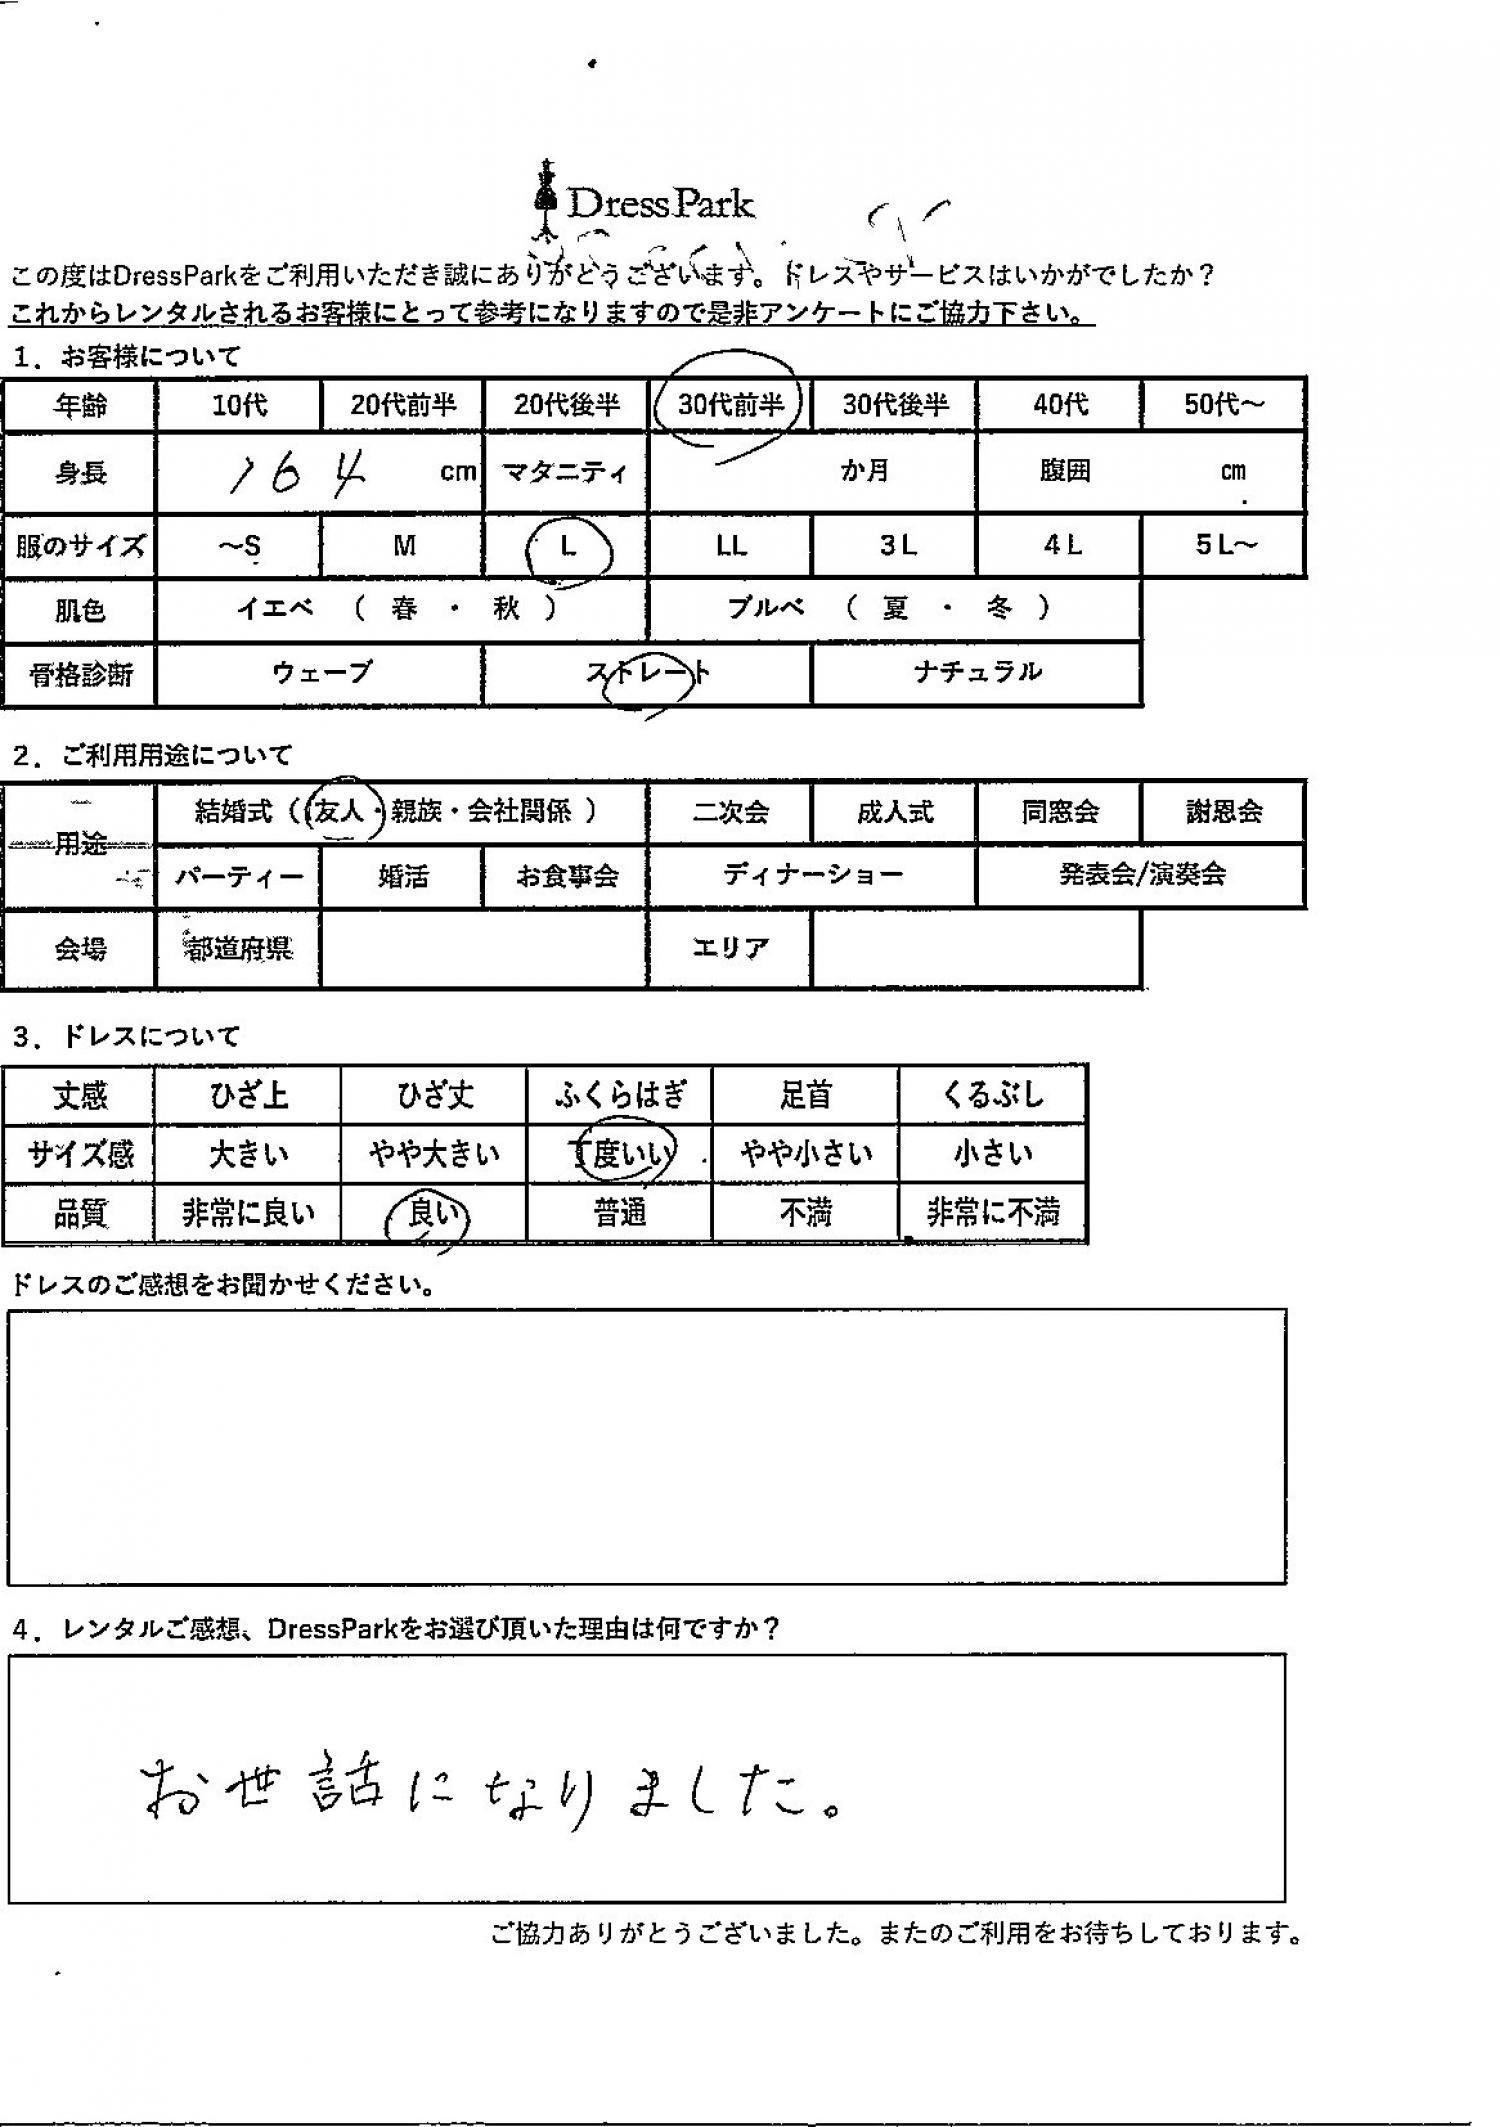 DressPark
この度はDressParkをご利用いただき誠にありがとうございます。ドレスやサービスはいかがでしたか？
これからレンタルされるお客様にとって参考になりますので是非アンケートにご協力下さい。
1．お客様について
年齢 10代 20代前半 20代後半 30代前半 30代後半 40代 50代～
身長 164 cm マタニティ か月 腹囲 cm
服のサイズ ～S M L LL 3L 4L 5L～
肌色 イエベ （ 春 ・ 秋 ） ブルベ （ 夏 ・ 冬 ）
骨格診断 ウェーブ ストレート ナチュラル
2．ご利用用途について
用途 結婚式（（友人・親族・会社関係 ） 二次会 成人式 同窓会 謝恩会
パーティー 婚活 お食事会 ディナーショー 発表会/演奏会
会場 都道府県 エリア
3．ドレスについて
丈感 ひざ上 ひざ丈 ふくらはぎ 足首 くるぶし
サイズ感 大きい やや大きい 丁度いい やや小さい 小さい
品質 非常に良い 良い 普通 不満 非常に不満
ドレスのご感想をお聞かせください。
4．レンタルご感想、DressParkをお選び頂いた理由は何ですか？
お世話になりました。
ご協力ありがとうございました。またのご利用をお待ちしております。